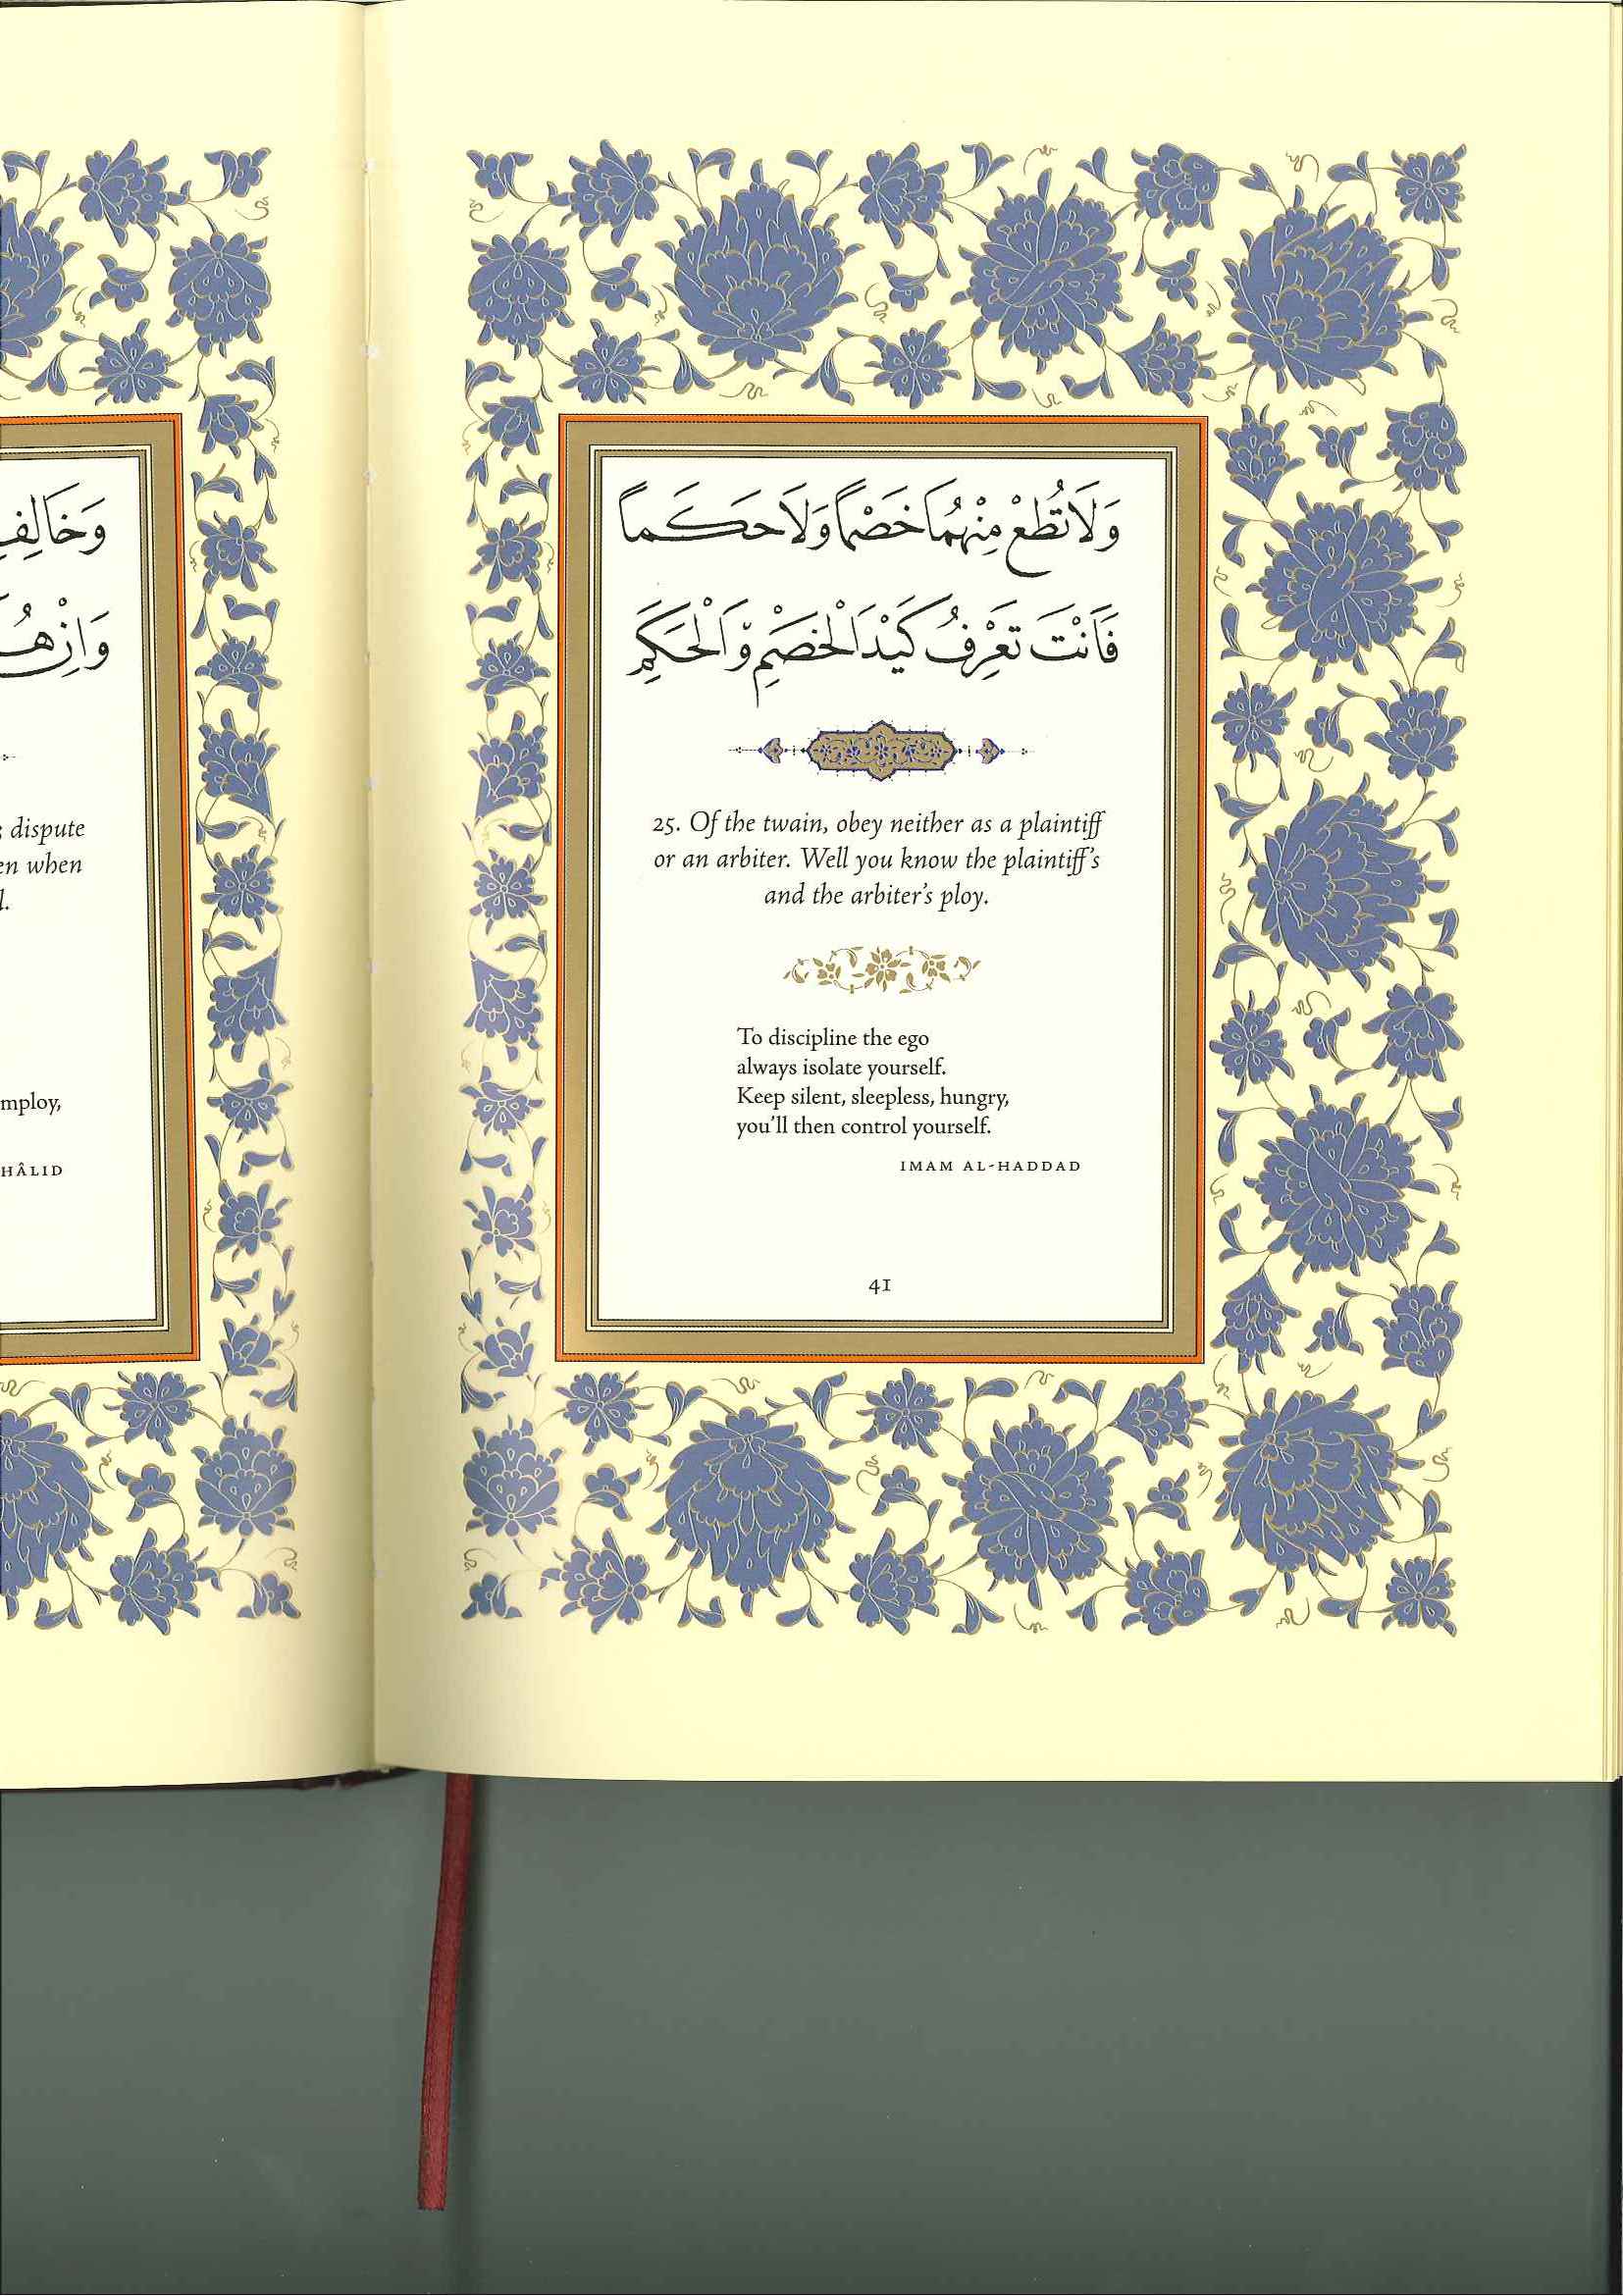 وَخَالِفِ
; dispute
en when
mploy,
HÂLID
وَلَا تُطِعْ مِنْهُمَا خَصْمًا وَلَا حَكَمًا
فَانْتَ تَعْرِفُ كَيْدَ الْخَصْمِ وَالْحَكَمِ
25. Of the twain, obey neither as a plaintiff
or an arbiter. Well you know the plaintiff's
and the arbiter's ploy.
To discipline the ego
always isolate yourself.
Keep silent, sleepless, hungry,
you'll then control yourself.
IMAM AL-HADDAD
41